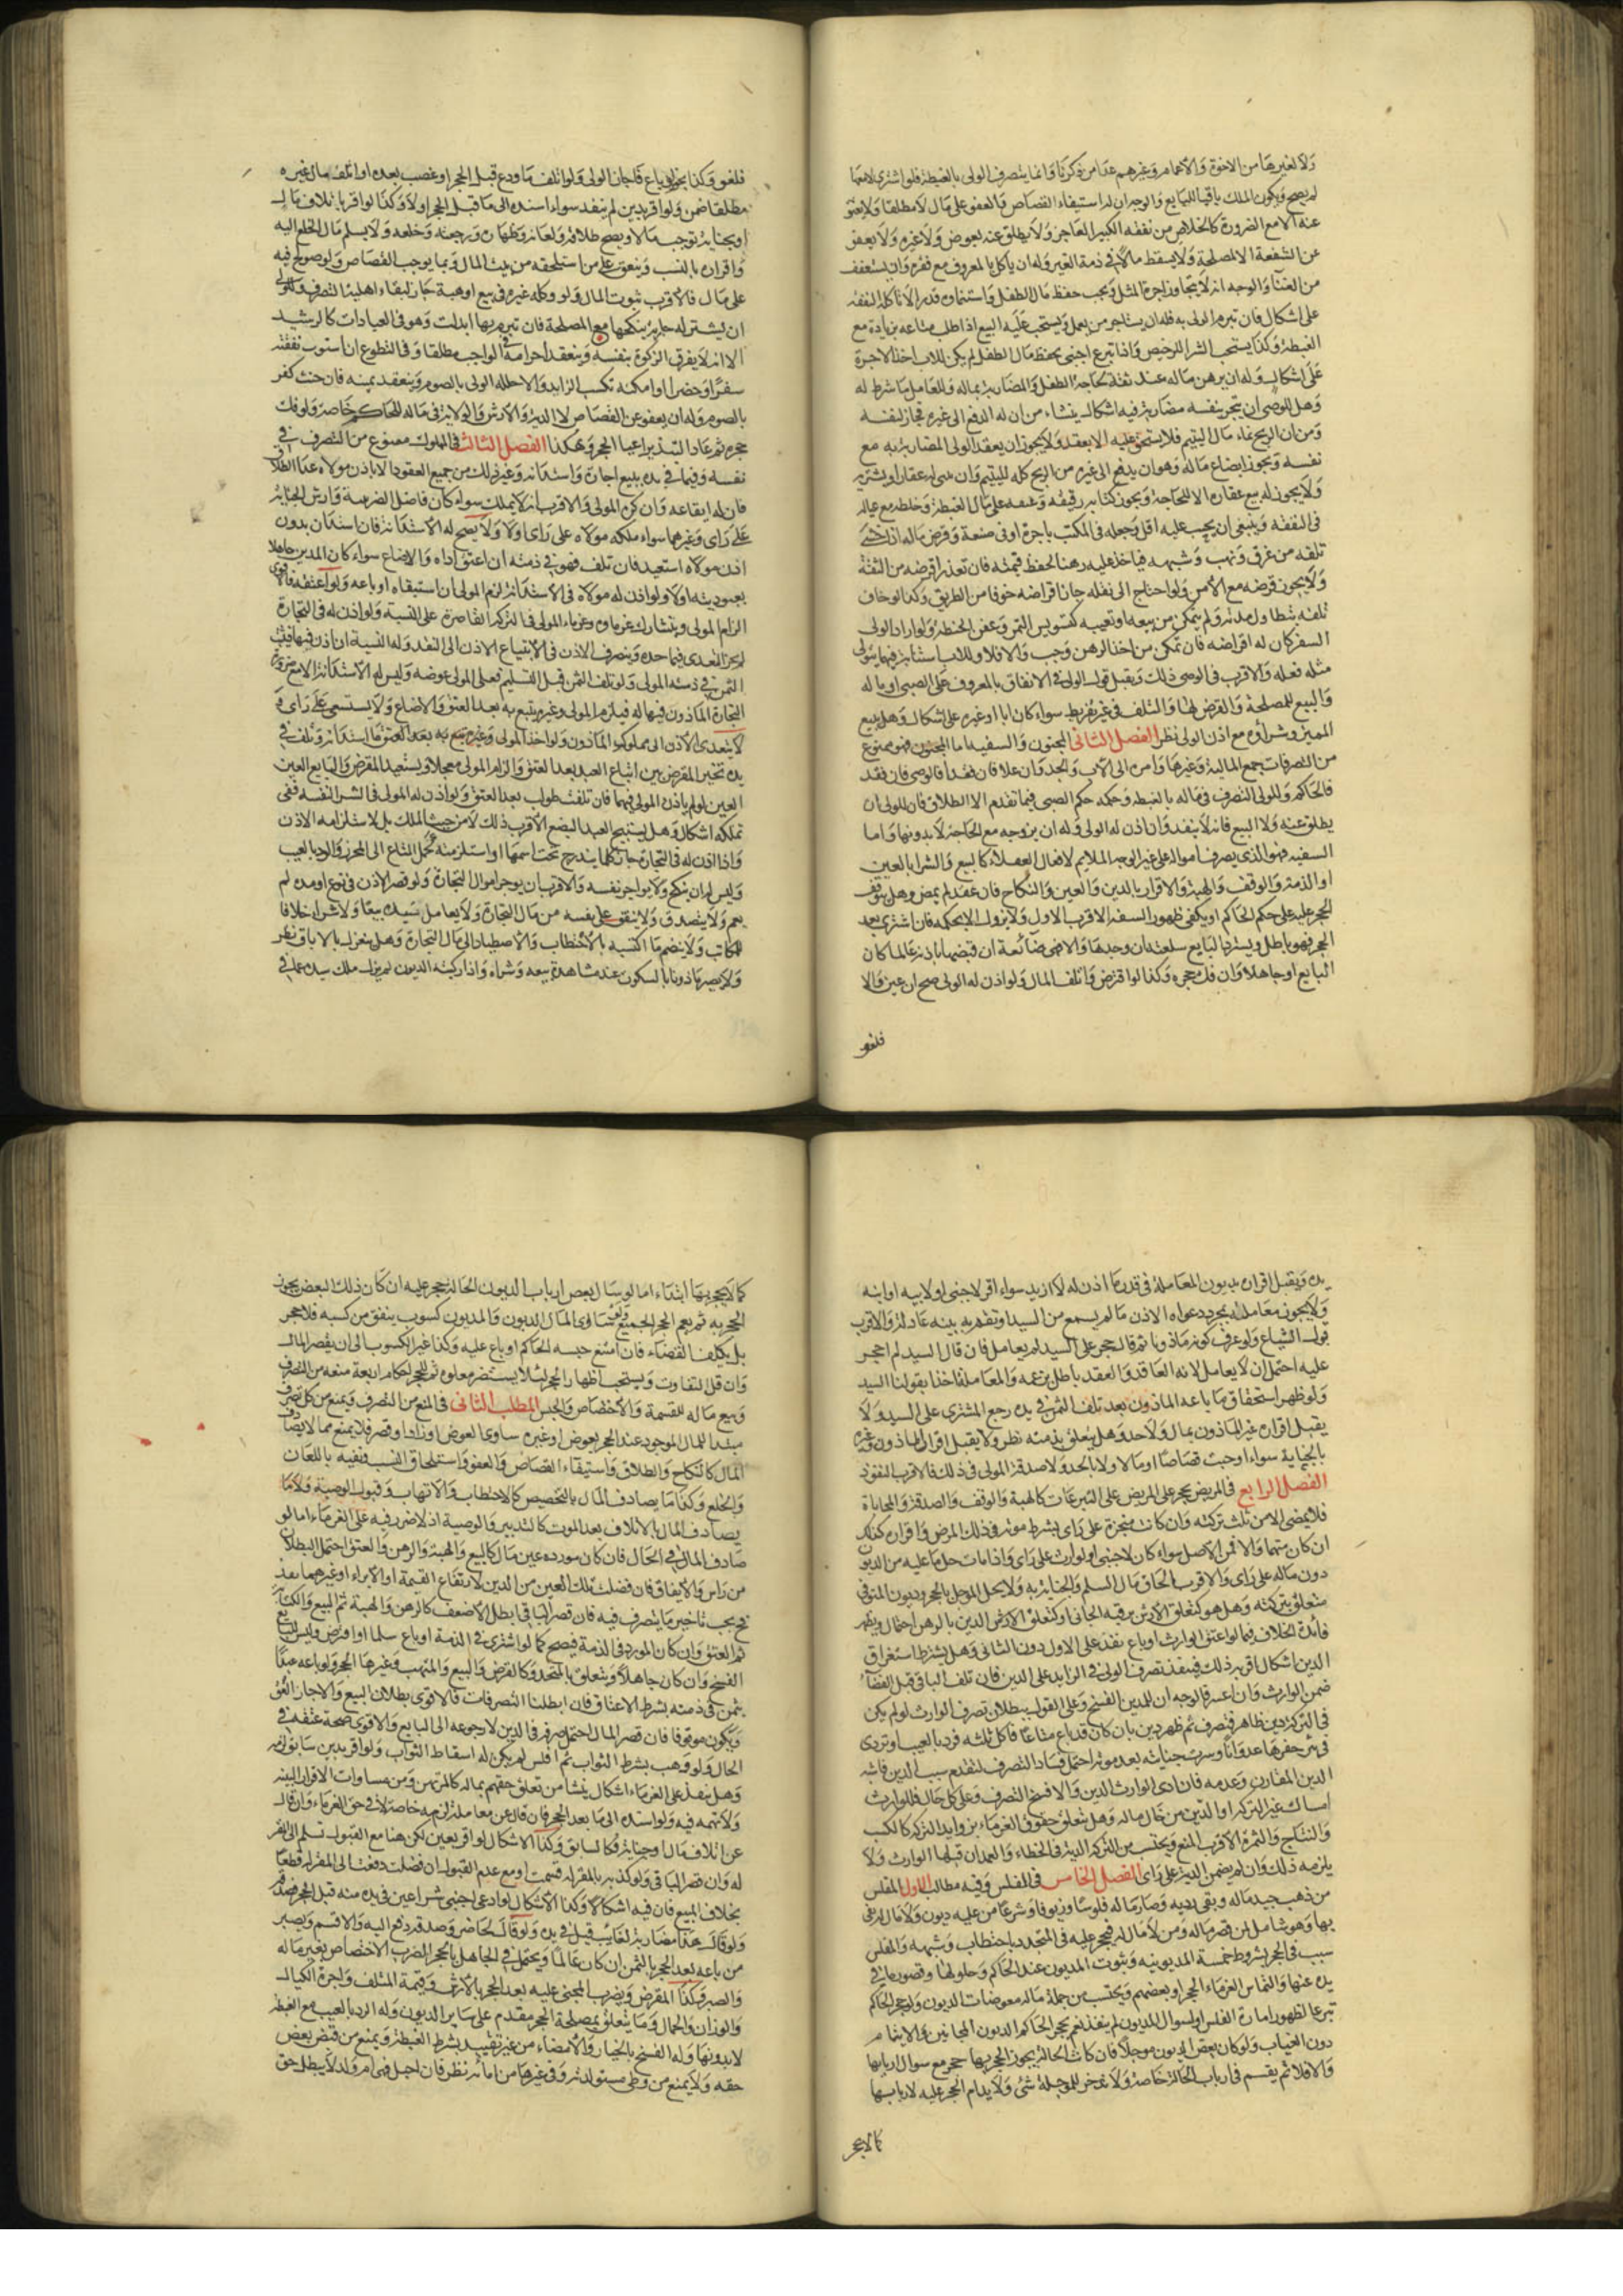 ولا لغيرها من الاخوة والاعمام وغيرهم عدا من ذكرنا وانما يتصرف الولى بالغبطة فلو اشترى لامعها
لم يصح ويكون الملك باقيا للبايع والوجه ان له استيفاء القصاص والعفو على مال لا مطلقا ولا يعتق
عنه الا مع الضرورة كالخلاص من نفقه الكبير العاجز ولا يطلق عنه بعوض ولا غيره ولا يعفو
عن الشفعة الا لمصلحة ولا يسقط مالا فى ذمة الغير وله ان ياكل بالمعروف مع فقره وان يستعفف
من الغنا والوجه انه لا يتجاوز اجرة المثل ويجب حفظ مال الطفل واستنماوه قدرا لا تاكله النفقه
على اشكال فان تبرم الولى به فله ان يستاجر من يعمل ويستحب عليه البيع اذا طلب متاعه بزيادة مع
الغبطة وكذا يستحب الشرا للرخيص واذا تبرع اجنبى بحفظ مال الطفل لم يكن للاب اخذ الاجرة
على اشكال وله ان يرهن ماله عند ثقة لحاجة الطفل والمضاربة بماله وللعامل ما شرط له
وهل للوصى ان يتجر بنفسه مضاربة فيه اشكال ينشاء من ان له الدفع الى غيره فجاز لنفسه
ومن ان الربح نماء مال اليتيم فلا يستحق عليه الا بعقد ولا يجوز ان يعقد الولى المضاربة به مع
نفسه ويجوز ابضاع ماله وهو ان يدفع الى غيره من الربح كله لليتيم وان يبنى له عقارا ويشتريه
ولا يجوز له بيع عقاره الا للحاجة ويجوز كتابة رقيقه وعتقه على مال للغبطة وخلطه مع عياله
فى النفقه وينبغى ان يحسب عليه اقل وجعله فى المكتب باجرة او فى صنعة وقرض ماله اذا خشى
تلفه من غرق ونهب وشبهه فياخذ عليه رهنا لحفظ قيمته فان تعذر اقرضه من الثقة
ولا يجوز قرضه مع الامن ولو احتاج الى نقله جاز اقراضه خوفا من الطريق وكذا لو خاف
تلفه بتطاول مدته ولم يتمكن من بيعه او تعيبه كتسويس التمر وعفن الحنطة ولو اراد الولى
السفر كان له اقراضه فان تمكن من اخذ الرهن وجب والا فلا وللاب استنابة فيما يتولى
مثله فعله والاقرب فى الوصى ذلك ويقبل قول الولى فى الانفاق بالمعروف على الصبى او ماله
والبيع للمصلحة والقرض لها والتلف فى غير تفريط سواء كان ابا او غيره على اشكال وهل يبيع
المميز وشراؤه مع اذن الولى نظر الفصل الثانى المجنون والسفيه اما المجنون فهو ممنوع
من التصرفات جمع المالية وغيرها وامره الى الاب والجد وان علا فان فقدا فالوصى فان فقد
فالحاكم وللولى التصرف فى ماله بالغبطه وحكمه حكم الصبى فيما تقدم الا الطلاق فان للولى ان
يطلق عنه ولا البيع فانه لا ينفد وان اذن له الولى وله ان يزوجه مع الحاجة لا بدونها واما
السفيه فهو الذى يصرف امواله على غير الوجه الملايم لافعال العقلاء كالبيع والشرا بالعين
او الذمة والوقف والهبة والاقرار بالدين والعين والنكاح فان عقد لم يمض وهل يتوقف
الحجر عليه على حكم الحاكم او يكفى ظهور السفه الاقرب الاول ولا يزول الا بحكمه فان اشترى بعد
الحجر فهو باطل ويسترد البايع سلعته ان وجدها والا فهى ضائعة ان قبضها باذنه عالما كان
البايع او جاهلا وان فك حجره وكذا لو اقترض واتلف المال ولو اذن له الولى صح ان عين والا
فلغو
فلغو وكذا يجوز لو باع فاجاز الولى ولو اتلف ما ودع قبل الحجر او غصب بعده او اتلف مال غيره
مطلقا ضمن ولو اقر بدين لم ينفد سواء اسنده الى ما قبل الحجر اولا وكذا لو اقر باتلاف مال
او بجناية توجب مالا ويصح طلاقه ولعانه وظهاره ورجعته وخلعه ولا يسلم مال الخلع اليه
واقراره بالنسب وينفق على من استلحقه من بيت المال وبما يوجب القصاص ولو صولح فيه
على مال فالاقرب ثبوت المال ولو وكله غيره فى بيع او هبة جاز لبقاء اهلية التصرف وللولى
ان يشترى له جارية ينكحها مع المصلحة فان تبرم بها ابدلت وهو فى العبادات كالرشيد
الا انه لا يفرق الزكوة بنفسه وينعقد احرامه فى الواجب مطلقا وفى التطوع ان استوت نفقته
سفرا وحضرا او امكنه تكسب الزايد والا حلله الولى بالصوم وينعقد يمينه فان حنث كفر
بالصوم وله ان يعفو عن القصاص لا الدية والارش والولاية فى ماله للحاكم خاصة ولو فك
حجره ثم عاد التبذير اعيد الحجر وهكذا الفصل الثالث فى المملوك ممنوع من التصرف فى
نفسه وفيما فى يده ببيع اجارة واستدانة وغير ذلك من جميع العقود الا باذن مولاه عدا الطلاق
فان له ايقاعه وان كره المولى والاقرب انه لا يملك سواء كان فاضل الضريبة وارش الجناية
على راى وغيرهما سواء ملكه مولاه على راى اولا ولا يصح له الاستدانة فان استدان بدون
اذن مولاه استعيد فان تلف فهو فى ذمته ان اعتق اداه والا ضاع سواء كان المدين جاهلا
بعبوديته اولا ولو اذن له مولاه فى الاستدانة لزم المولى ان استبقاه او باعه ولو اعتقه فالاقوى
الزام المولى ويتشارك غرماوه وغرماء المولى فى التركة القاصرة على النسبة ولو اذن له فى التجارة
لم يجز التعدى فيما حده وينصرف الاذن فى الابتياع الاذن الى النقد وله النسية ان اذن فيها فيثبت
الثمن فى ذمته المولى ولو تلف الثمن قبل التسليم فعلى المولى عوضه وليس له الاستدانة الا مع ضرورة
التجارة الماذون فيها له فيلزم المولى وغيره يتبع به بعد العتق والا ضاع ولا يستسعى على راى ولا
لا يتعدى الاذن الى مملوك الماذون ولو اخذ المولى وغيره تبع به بعد العتق ما استدانه وتلف فى
يده تخير المقرض بين اتباع العبد بعد العتق والزام المولى معجلا ويستعيد المقرض والبايع العين
العين لو لم ياذن المولى فيهما فان تلفت طولب بعد العتق ولو اذن له المولى فى الشرا لنفسه ففى
تملكه اشكال وهل يستبيح العبد البضع الاقرب ذلك لا من حيث الملك بل لاستلزامه الاذن
واذا اذن له فى التجارة جاز كلما يندرج تحت اسمها او استلزمته كحمل المتاع الى المحرز والرد بالعيب
وليس له ان ينكح ولا يواجر نفسه والاقرب ان يوجر اموال التجارة ولو قصر الاذن فى نوع او مده لم
يعم ولا يتصدق ولا ينفق على نفسه من مال التجارة ولا يعامل سيده بيعا ولا شراء خلافا
للمكاتب ولا ينضم ما اكتسبه بالاحتطاب والاصطياد الى مال التجارة وهل ينعزل بالاباق نظر
ولا يصير ماذونا بالسكوت عند مشاهدة بيعه وشراه واذا ركبته الديون لم يزل ملك سيده عما فى
يده ويقبل اقراره بديون المعاملة فى قدر ما اذن له لا ازيد سواء اقر لاجنبى او لابيه او ابنه
ولا يجوز معاملته بمجرد دعواه الاذن مالم يسمع من السيد او تقوم به بينه عادلة والاقرب
قبول الشياع ولو عرف كونه ماذونا ثم قال حجر على السيد لم يعامل فان قال السيد لم احجر
عليه احتمل ان لا يعامل لانه العاقد والعقد باطل بزعمه والمعاملة اخذا بقول السيد
ولو ظهر استحقاق ما باعه الماذون بعد تلف الثمن فى يده رجع المشترى على السيد ولا
يقبل اقرار غير الماذون بمال ولا حد وهل يتعلق بذمته نظر ولا يقبل اقرار الماذون وغيره
بالجناية سواء اوجبت قصاصا او مالا ولا بالحد ولا صدقه المولى فى ذلك فالاقرب النفوذ
الفصل الرابع فى المريض يحجر على المريض على التبرعات كالهبة والوقف والصدقة والمحاباة
فلا يمضى الا من ثلث تركته وان كانت منجزة على راى بشرط موته فى ذلك المرض واقراره كذلك
ان كان متهما والا فمن الاصل سواء كان لاجنبى او لوارث على راى واذا مات حل ما عليه من الديون
دون ماله على راى والاقرب الحاق مال السلم والجناية به ولا يحل الموجل بالحجر وديون المتوفى
متعلق بتركته وهل هو كتعلق الارش برقبه الجانى او كتعلق الارش الدين بالرهن احتمال ويظهر
فائدة الخلاف فيما لو اعتق الوارث او باع نفذ على الاول دون الثانى وهل يشترط استغراق
الدين اشكال اقربه ذلك فينفذ تصرف الولى فى الزايد على الدين فان تلف الباقى قبل القضاء
ضمن الوارث وان اعسر فالوجه ان للمدين الفسخ وعلى القول ببطلان تصرف الوارث لو لم يكن
فى التركة دين ظاهر فتصرف ثم ظهر دين بان كان قد باع متاعا فاكل ثمنه فرد بالعيب او تردى
فى بئر حفرها عدوانا وسرت جنايته بعد موته احتمل فساد التصرف لتقدم سبب الدين فاشبه
الدين المقارن وعدمه فان ادى الوارث الدين والا فسخ التصرف وعلى كل حال فللوارث
امساك غير التركه اوالدين من خال ماله وهل يتعلق حقوق الغرماء بزوايد التركه كالكسب
والنتاج والثمرة الاقرب المنع ويحتسب من التركه الدية فى الخطاء والعمد ان قبلها الوارث ولا
يلزمه ذلك وان لم يضمن الدية على راى الفصل الخامس فى المفلس وفيه مطالب الاول المفلس
من ذهب جيد ماله وبقى رديه وصار ماله فلوسا وزيوفا وشرعا من عليه ديون ولا مال له يفى
بها وهو شامل لمن قصر ماله ومن لا مال له فيحجر عليه فى المتجدد باحتطاب وشبهه والفلس
سبب فى الحجر بشروط خمسة المديونيه وثبوت المديون عند الحاكم وحلولها وقصور ما فى
يده عنها والتماس الغرماء الحجر او بعضهم ويحتسب من جملة ماله معوضات الديون ولو حجر الحاكم
تبرعا لظهور امارة الفلس او لسوال المديون لم ينفذ نعم يحجر الحاكم لديون المجانين والايتام
دون الغياب ولو كان بعض الديون موجلا فان كانت الحالة يجوز الحجر بها حجر مع سوال اربابها
والا فلا ثم يقسم فى ارباب الحالة خاصة ولا يدخر للموجلة شئ ولا يدام الحجر عليه لاربابها
كما لا يحجر
كما لا يحجر بها ابتداء اما لو سال بعض ارباب الديون الحالة حجر عليه ان كان ذلك البعض يجوز
الحجر به ثم يعم الحجر الجميع ولو تساوى المال الديون والمديون كسوب ينفق من كسبه فلا حجر
بل يكلف القضاء فان امتنع حبسه الحاكم او باع عليه وكذا غير الكسوب الى ان يقصر المال
وان قل التفاوت ويستحب اظهار الحجر لئلا يستضر معاملوه ثم للحجر احكام اربعة منعه من التصرف
وبيع ماله للقسمة والاختصاص والحبس المطلب الثانى فى المنع من التصرف ويمنع من كل تصرف
مبتدا للمال الموجود عند الحجر بعوض او غيره ساوى العوض او زاد او قصر فلا يمنع مما لا يصادف
المال كالنكاح والطلاق واستيفاء القصاص والعفو واستلحاق النسب ونفيه باللعان
والخلع وكذا ما يصادف المال بالتحصيص كالاحتطاب والاتهاب وقبول الوصية ولا ما
يصادف المال بالاتلاف بعد الموت كالتدبير والوصية اذ لا ضرر فيه على الغرماء اما لو
صادف المال فى الحال فان كان مورده عين مال كالبيع والهبة والرهن والعتق احتمل البطلان
من راس والايفاق فان فضلت تلك العين من الدين لارتفاع القيمة او الابراء او غيرهما نفذ
فح يجب تاخير ما يتصرف فيه فان قصر الباقى ابطل الاضعف كالرهن والهبة ثم البيع والكتابة
ثم العتق وان كان المورد فى الذمة فيصح كما لو اشترى فى الذمة او باع سلما او اقترض وليس للبايع
الفسخ وان كان جاهلا ويتعلق بالمتجدد كالقرض والبيع والمتهب وغيرها الحجر ولو باعه عبدا
بثمن فى ذمته بشرط الاعتاق فان ابطلنا التصرفات فالاقوى بطلان البيع والا جاز العتق
ويكون موقوفا فان قصر المال احتمل صرفه فى الدين لا رجوعه الى البايع والاقوى صحة عتقه فى
الحال ولو وهب بشرط الثواب ثم افلس لم يكن له اسقاط الثواب ولو اقر بدين سابق لزمه
وهل ينفذ على الغرماء اشكال ينشا من تعلق حقهم بماله كالمرتهن ومن مساوات الاقرار البينه
ولا تهمه فيه ولو اسنده الى ما بعد الحجر فان قال عن معاملة لزمه خاصة لا فى حق الغرماء وان قال
عن اتلاف مال او جناية فكالسابق وكذا الاشكال لو اقر بعين لكن هنا مع القبول تسلم الى المقر
له وان قصر الباقى ولو كذبه بالمقر له قسمت او مع عدم القبول ان فضلت دفعت الى المقر له قطعا
بخلاف المبيع فان فيه اشكالا وكذا الاشكال لو ادعى اجنبى شراء عين فى يده منه قبل الحجر فصدقه
ولو قال هذا مضاربة لغايب قيل يقر فى يده ولو قال لحاضر وصدقه دفع اليه والا قسم ويصبر
من باعه بعد الحجر بالثمن ان كان عالما ويحتمل فى الجاهل بالحجر الضرب الاختصاص بعين ماله
والصبر وكذا المقرض ويضرب المجنى عليه بعد الحجر بالارش وقيمة المتلف واجرة الكيال
والوزان والحمال وما يتعلق بمصلحة الحجر مقدم على ساير الديون وله الرد بالعيب مع الغبطة
لا بدونها وله الفسخ بالخيار والامضاء من غير تقييد بشرط الغبطة ويمنع من قبض بعض
حقه ولا يمنع من وطى مستولدته وفى غيرها من امائه نظر فان احبل فهى ام ولد لا يبطل حق